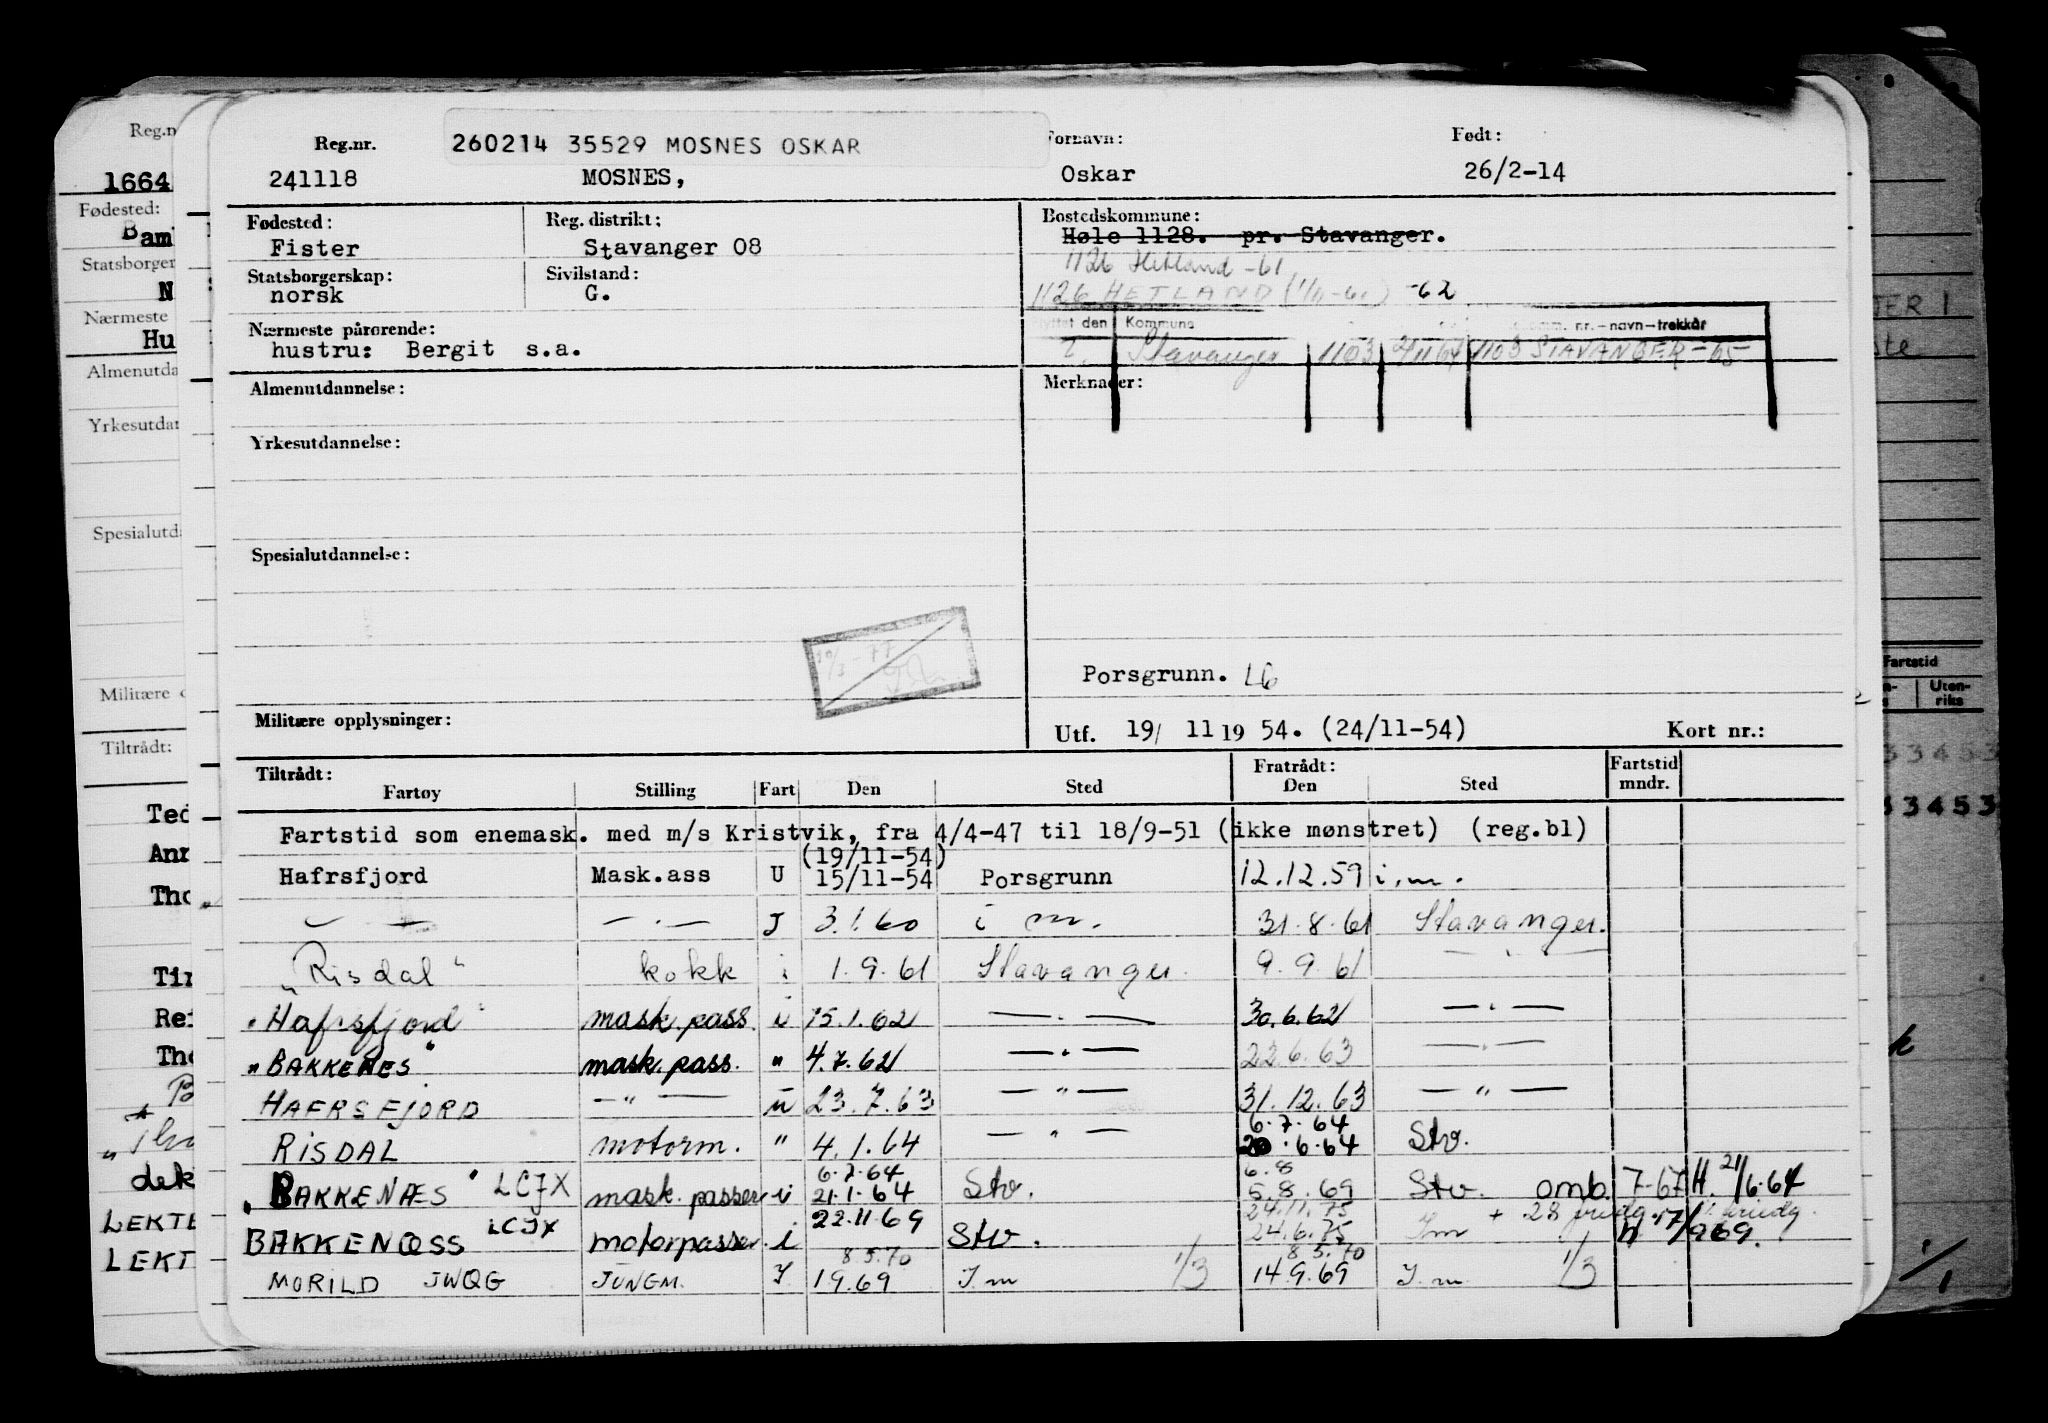 Reg.nr. 260214 35529 MOSNES OSKAR Fornavn: Født:
241118 MOSNES, Oskar 26/2-14
Fødested: Reg. distrikt: Bostedskommune:
Fister Stavanger 08 Høle 1128. pr. Stavanger.
Statsborgerskap: Sivilstand: 1126 Hetland -61
norsk G. 1126 HETLAND -62
Nærmeste pårørende: den Kommune nr.-navn-trekkår
hustru: Bergit s.a. Stavanger 1103 1103 STAVANGER-65
Almenutdannelse: Merknader:
Yrkesutdannelse:
Spesialutdannelse:
Porsgrunn. LG
Militære opplysninger: Utf. 19/ 11 19 54. (24/11-54) Kort nr.:
Tiltrådt: Fratrådt: Fartstid
Fartøy Stilling Fart Den Sted Den Sted mndr.
Fartstid som enemask. med m/s Kristvik, fra 4/4-47 til 18/9-51 (ikke mønstret) (reg.bl)
(19/11-54)
Hafrsfjord Mask.ass U 15/11-54 Porsgrunn 12.12.59 i.m.
— — — . — J 3.1.60 i m. 31.8.61 Stavanger.
"Risdal" kokk i 1.9.61 Stavanger. 9.9.61 — . —
"Hafrsfjord" mask.pass. i 15.1.62 — . — 30.6.62 — . —
"BAKKENES" mask.pass. " 4.7.62 — . — 22.6.63 — . —
HAFRSFJORD — " — 23.7.63 — " — 31.12.63 — " —
6.7.64
RISDAL motorm. " 4.1.64 — " — 20.6.64 Stv.
6.7.64 6.8
"BAKKENÆS" LCJX mask. passer i 21.1.64 Stv. 5.8.69 Stv. omb. 7-67 H. 21/6-64
22.11.69 24.11.75 + 28
BAKKENÆSS LCJX motorpasser. i Stv. 24.6.75 Im 17/969.
8.5.70 8.5.70
MORILD JWQG JUNGM. 1 9.69 I.m 1/3 14.9.69 I.m. 1/3
Reg.n
1664
Fødested:
Bam
Statsborger
N
Nærmeste
Hu
Almenutda
Yrkesutdan
Spesialutda
Militære
Tiltrådt:
Ted
Ann
Tho
Tir
Rei
Tho
dek
LEKTE
LEKT
Fartstid
Uten-
riks
33453
33453
1/1